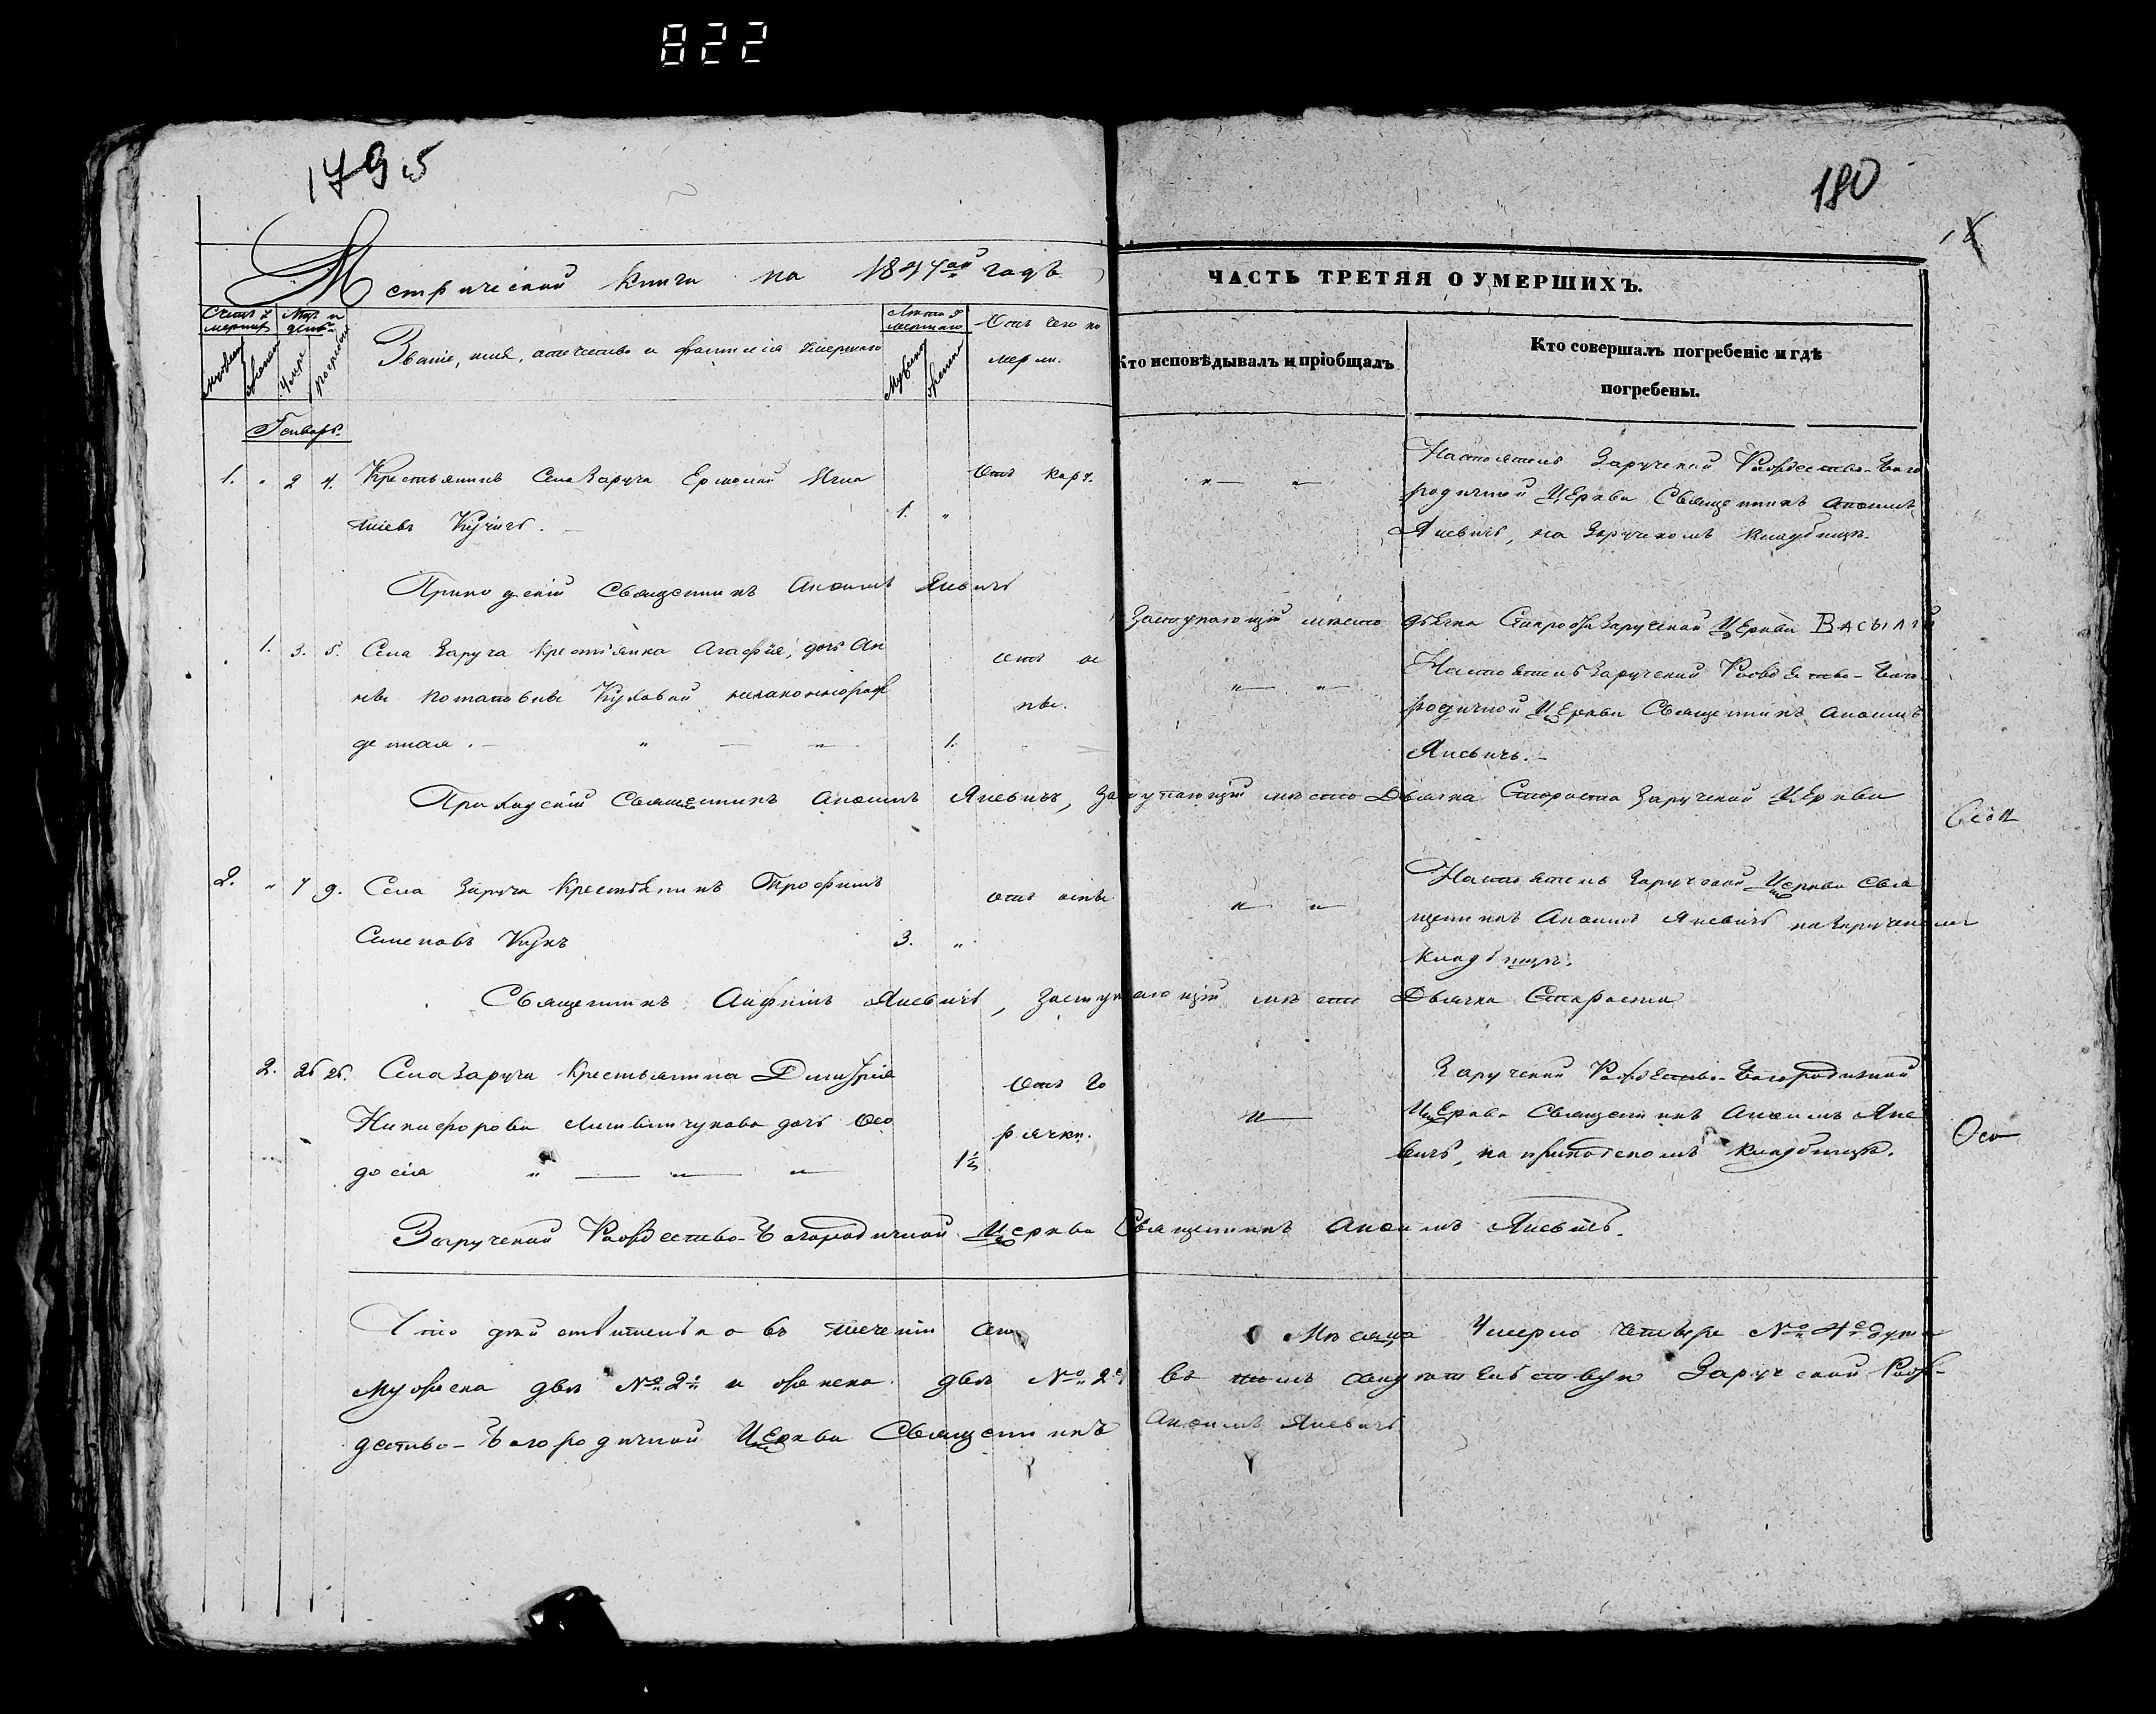 822
1795
180
Метрической книги на 1847ой годъ
ЧАСТЬ ТРЕТЯЯ О УМЕРШИХЪ.
Мужеска
Женска
Умре
погребен
Званіе, имя, отечество и фамилія умершаго
Мужеска
женска
Отъ чего по
мерли.
Кто исповѣдывалъ и пріобщалъ
Кто совершалъ погребеніе и гдѣ
погребены.
Генварь.
1. " 2 4. Крестьянинъ Села Заруча Ермолай Игна
тіевъ
1. "
Отъ кору.
" "
Настоятель Заруцкой Рождество-Бого
родичной Церкви Священникъ Анфимъ
Яневичъ, на Заруцкомъ кладбищѣ.
Приходскій Священникъ Анфимъ Яневичъ
Заступающій мѣсто дьячка Староста Заруцкой Церкви Васылій
1. 3. 5. Села Заруча крестьянка Агафія, дочь Ан
ны Потаповны незаконнорож
денная. " "
1.
отъ ос
пы.
" "
Настоятель Заруцкой Рождество-Бого
родичной Церкви Священникъ Анфимъ
Яневичъ.
Приходскій Священникъ Анфимъ Яневичъ, Заступающій мѣсто Дьячка Староста Заруцкой Церкви
2. " 7 9. Села Заруча Крестьянинъ Трофимъ
Семеновъ Кукъ
3. "
отъ оспы
" "
Настоятель Заруцкой Церкви Свя
щенникъ Анфимъ Яневичъ на Заруцкомъ
кладбищѣ.
Священникъ Анфимъ Яневичъ, Заступающій мѣсто Дьячка Староста
2. 25 26. Села Заруча Крестьянина Димитрія
Никифорова Литвинчукова дочь Ѳео
досія " " "
1½
Отъ го
рячки.
"
Заруцкой Рождество-Богородичной
Церкви Священникъ Анфимъ Яне
вичъ, на приходскомъ кладбищѣ.
Заруцкой Рождество-Богородичной Церкви Священникъ Анфимъ Яневичъ.
Что дѣйствительно въ теченіи сего Мѣсяца Умерло четыре № 4е душ
мужеска двѣ № 2е и женска двѣ № 2е въ томъ свидѣтельствую Заруцкой Рож-
дество-Богородичной Церкви Священникъ Анфимъ Яневичъ